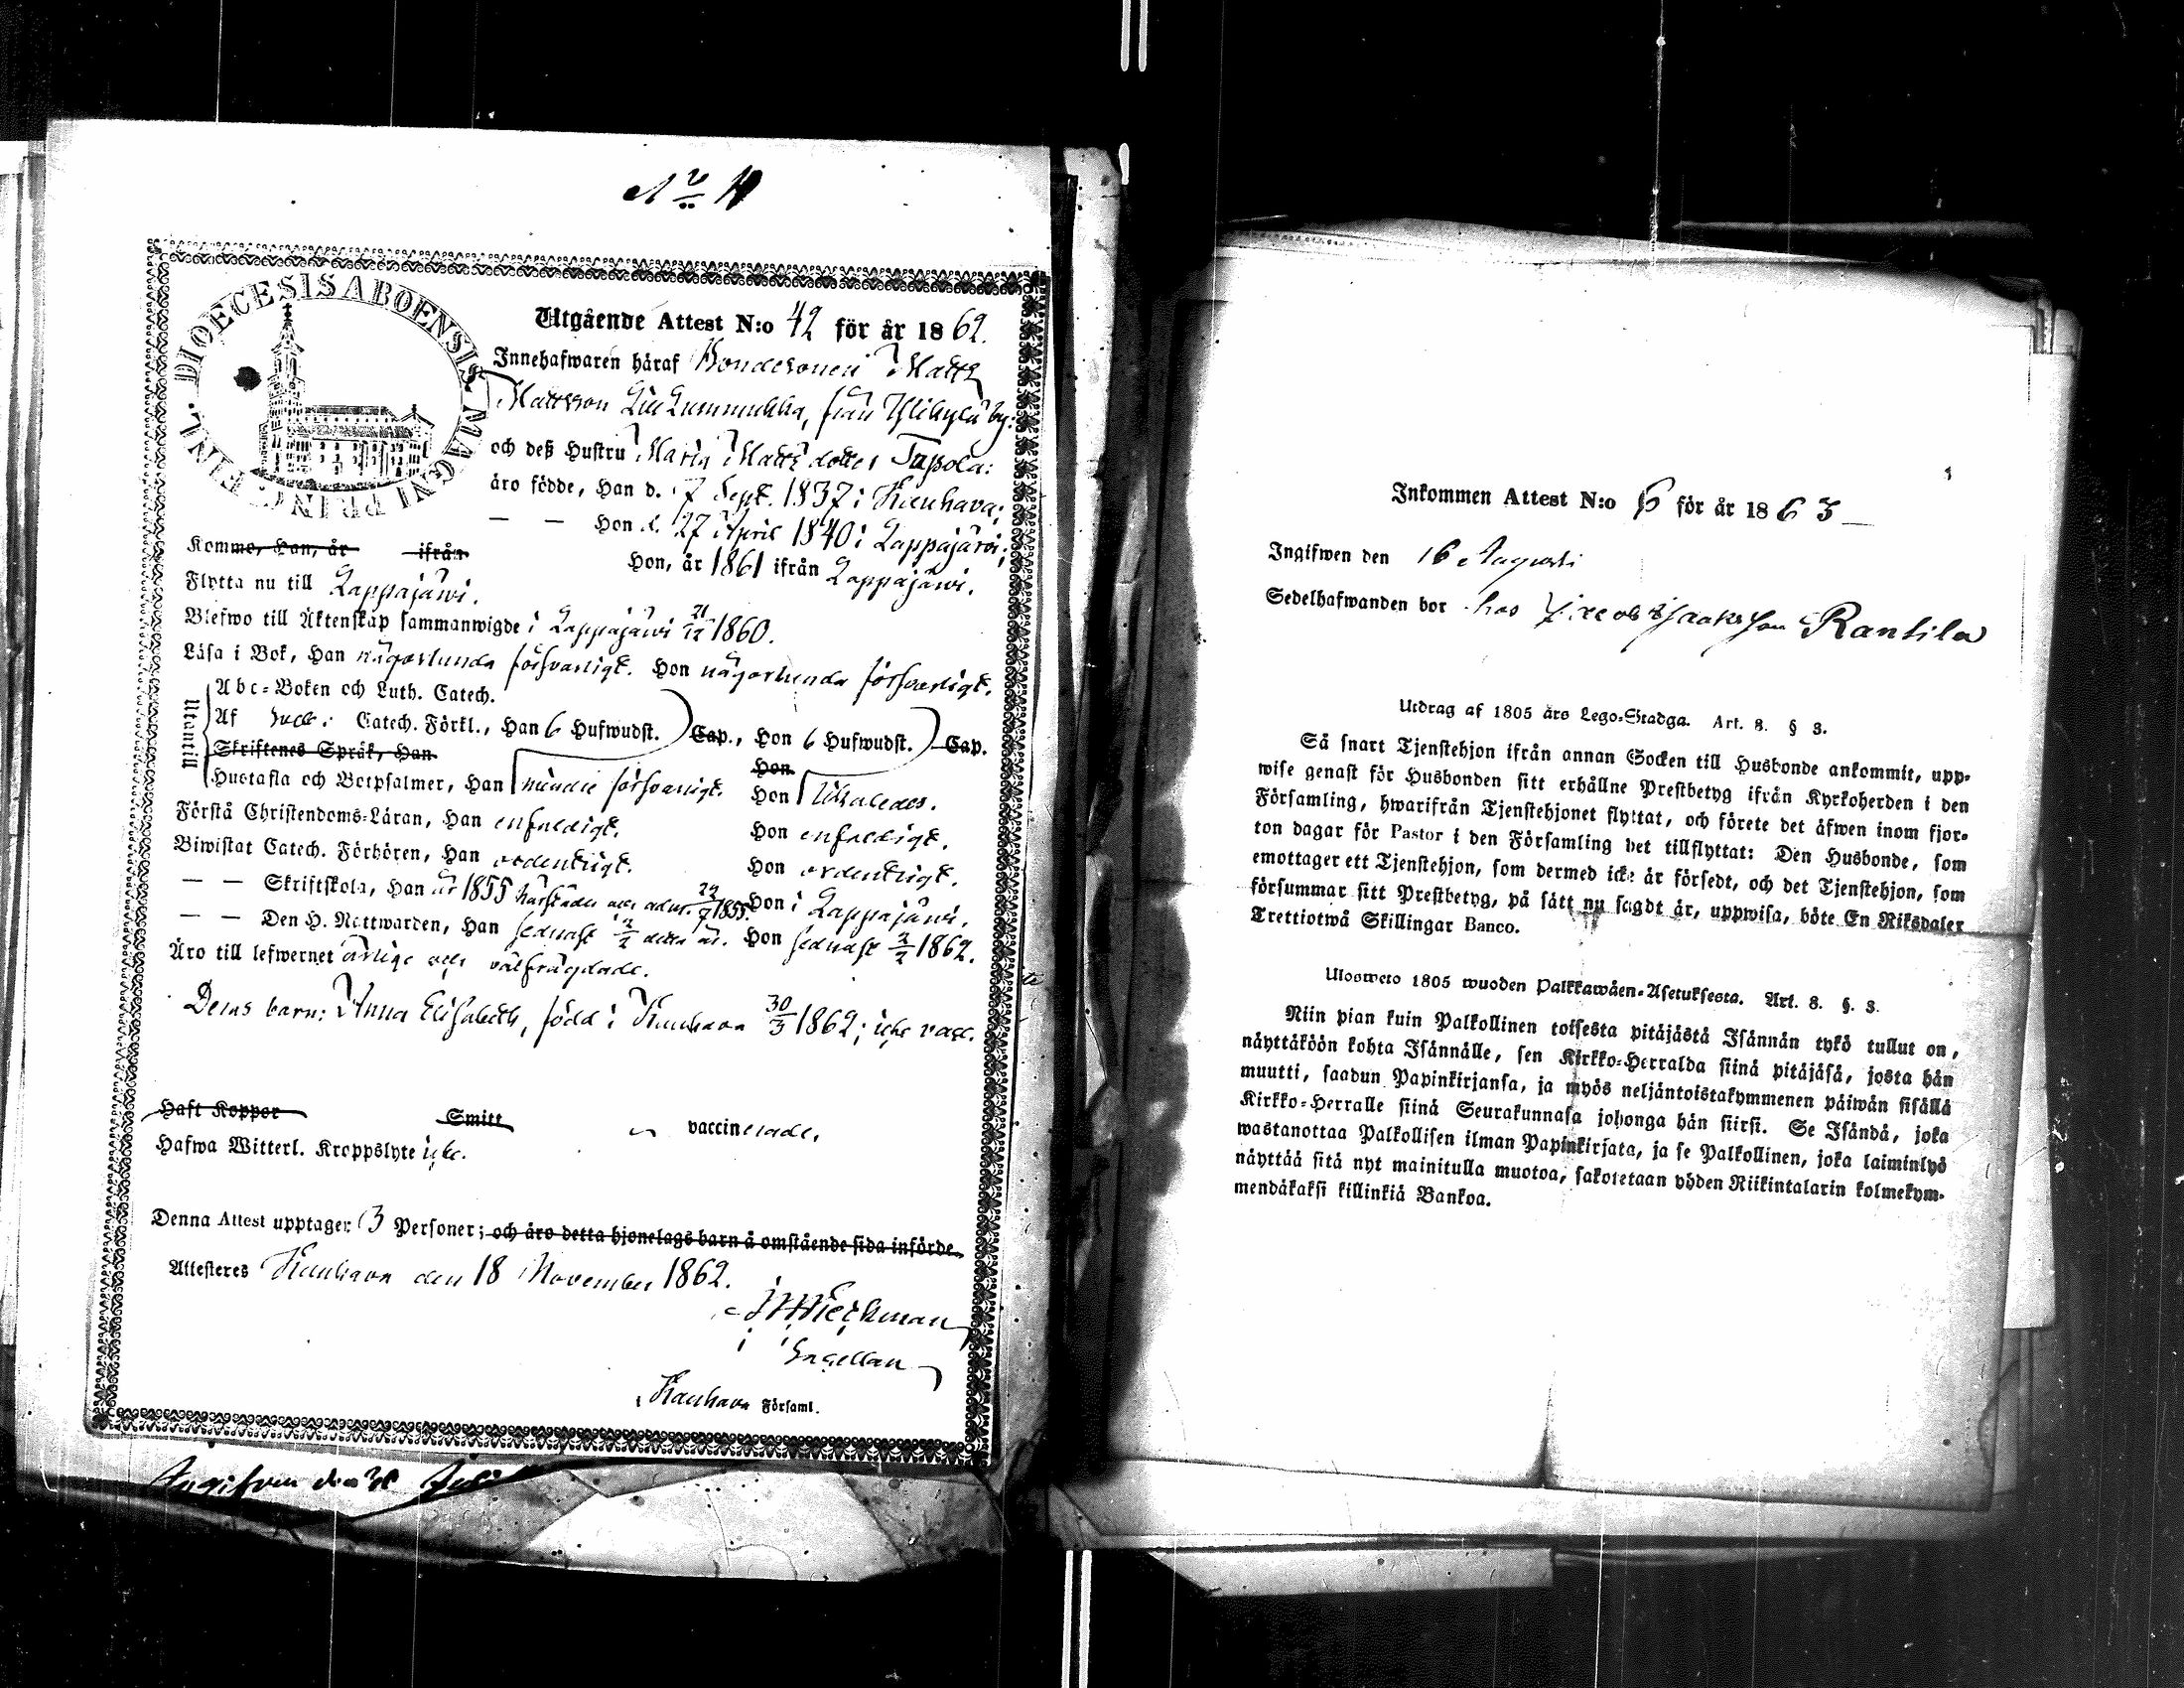 DIOECESIS ABOENSIS. MAGNI PRINC. FINL.
Utgående Attest N:o 42 för år 1862.
Innehafwaren häraf Bondesonen Matts
Mattsson, från Ylikylä by:
och deß Hustru Maria Matts dotter Tapola:
äro födde, Han d. 7 Sept. 1837 i Kauhava;
— — Hon d. 27 April 1840 i Lappajärvi;
Komme, Han, år ifrån Hon, år 1861 ifrån Lappajärvi.
Flytta nu till Lappajärvi.
Blefwo till Äktenskap sammanwigde i Lappajärvi 1860.
Läsa i Bok, Han någorlunda försvarligt. Hon någorlunda försvarligt.
Utantill
Abc-Boken och Luth. Catech.
Af Catech. Förkl., Han 6 Hufwudst. Cap., Hon 6 Hufwudst. Cap.
Skriftenes Språk, Han Hon
Hustafla och Botpsalmer, Han mindre försvarligt. Hon likaledes.
Förstå Christendoms-Läran, Han enfaldigt. Hon enfaldigt.
Biwistat Catech. Förhören, Han ordentligt. Hon ordentligt.
— — Skriftskola, Han år 1855 härstädes och adm. 1855. Hon i Lappajärvi.
— — Den H. Nattwarden, Han sednast detta år. Hon sednast 1862.
Äro till lefwernet ärlige och välfrägdade.
Deras barn: Anna Elisabeth, född i Kauhava 30/3 1862; icke vacc.
Haft Koppor Smitt vaccinerade.
Hafwa Witterl. Kroppslyte icke.
Denna Attest upptager 3 Personer; och äro detta hjonelags barn å omstående sida införde.
Attesteres Kauhava den 18 November 1862.
Kauhava Församl.
Angifven den Juli
Inkommen Attest N:o 6 för år 1863
Ingifwen den 16 Augusti
Sedelhafwanden bor hos Rantila
Utdrag af 1805 års Lego-Stadga. Art. 8. § 3.
Så snart Tjenstehjon ifrån annan Socken till Husbonde ankommit, upp-
wise genast för Husbonden sitt erhållne Prestbetyg ifrån Kyrkoherden i den
Församling, hwarifrån Tjenstehjonet flyttat, och förete det äfwen inom fjor-
ton dagar för Pastor i den Församling det tillflyttat: Den Husbonde, som
emottager ett Tjenstehjon, som dermed icke är försedt, och det Tjenstehjon, som
försummar sitt Prestbetyg, på sätt nu sagdt är, uppwisa, böte En Riksdaler
Trettiotwå Skillingar Banco.
Ulosweto 1805 wuoden Palkkawäen-Asetuksesta. Art. 8. §. 3.
Niin pian kuin Palkollinen toisesta pitäjästä Isännän tykö tullut on,
näyttäköön kohta Isännälle, sen Kirkko-Herralda siinä pitäjäsä, josta hän
muutti, saadun Papinkirjansa, ja myös neljäntoistakymmenen päiwän sisällä
Kirkko-Herralle siinä Seurakunnasa johonga hän siirsi. Se Isändä, joka
wastanottaa Palkollisen ilman Papinkirjata, ja se Palkollinen, joka laiminlyö
näyttää sitä nyt mainitulla muotoa, sakotetaan yhden Riikintalarin kolmekym-
mendäkaksi killinkiä Bankoa.